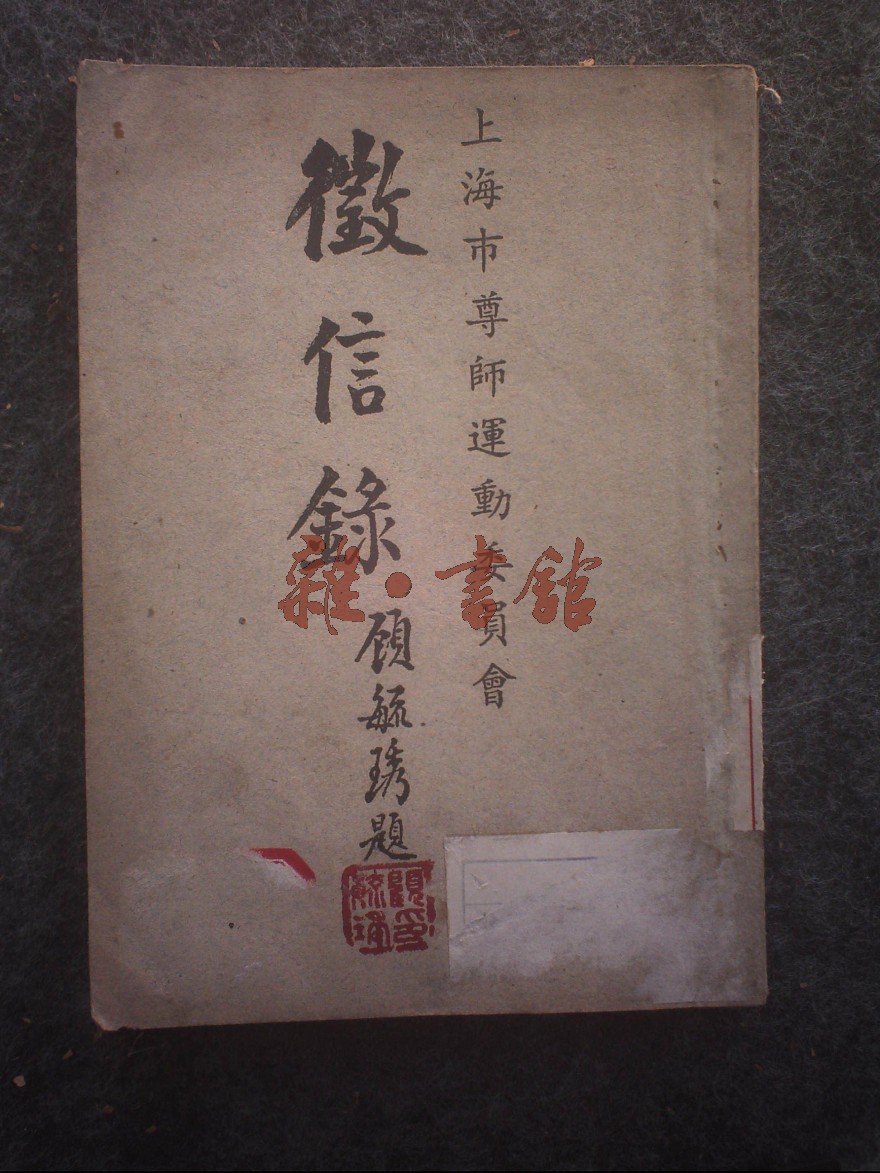 上海市尊師運動委員會
徵信錄
顧毓琇題
雜·書館